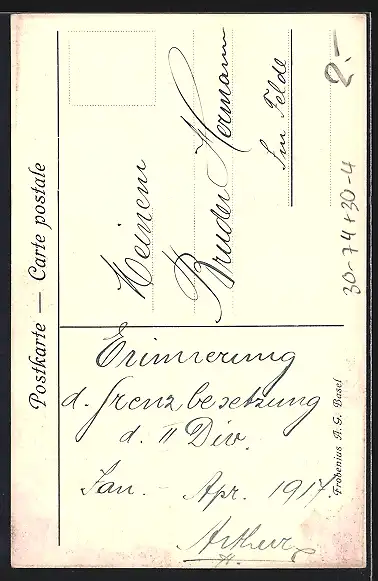 Postkarte — Carte postale
Meinem
Bruder Hermann
Im Felde
2.-
30-74+30-4
Erinnerung
d. Grenzbesetzung
d. II Div.
Jan. - Apr. 1917
Arthur
Frobenius A. G. Basel